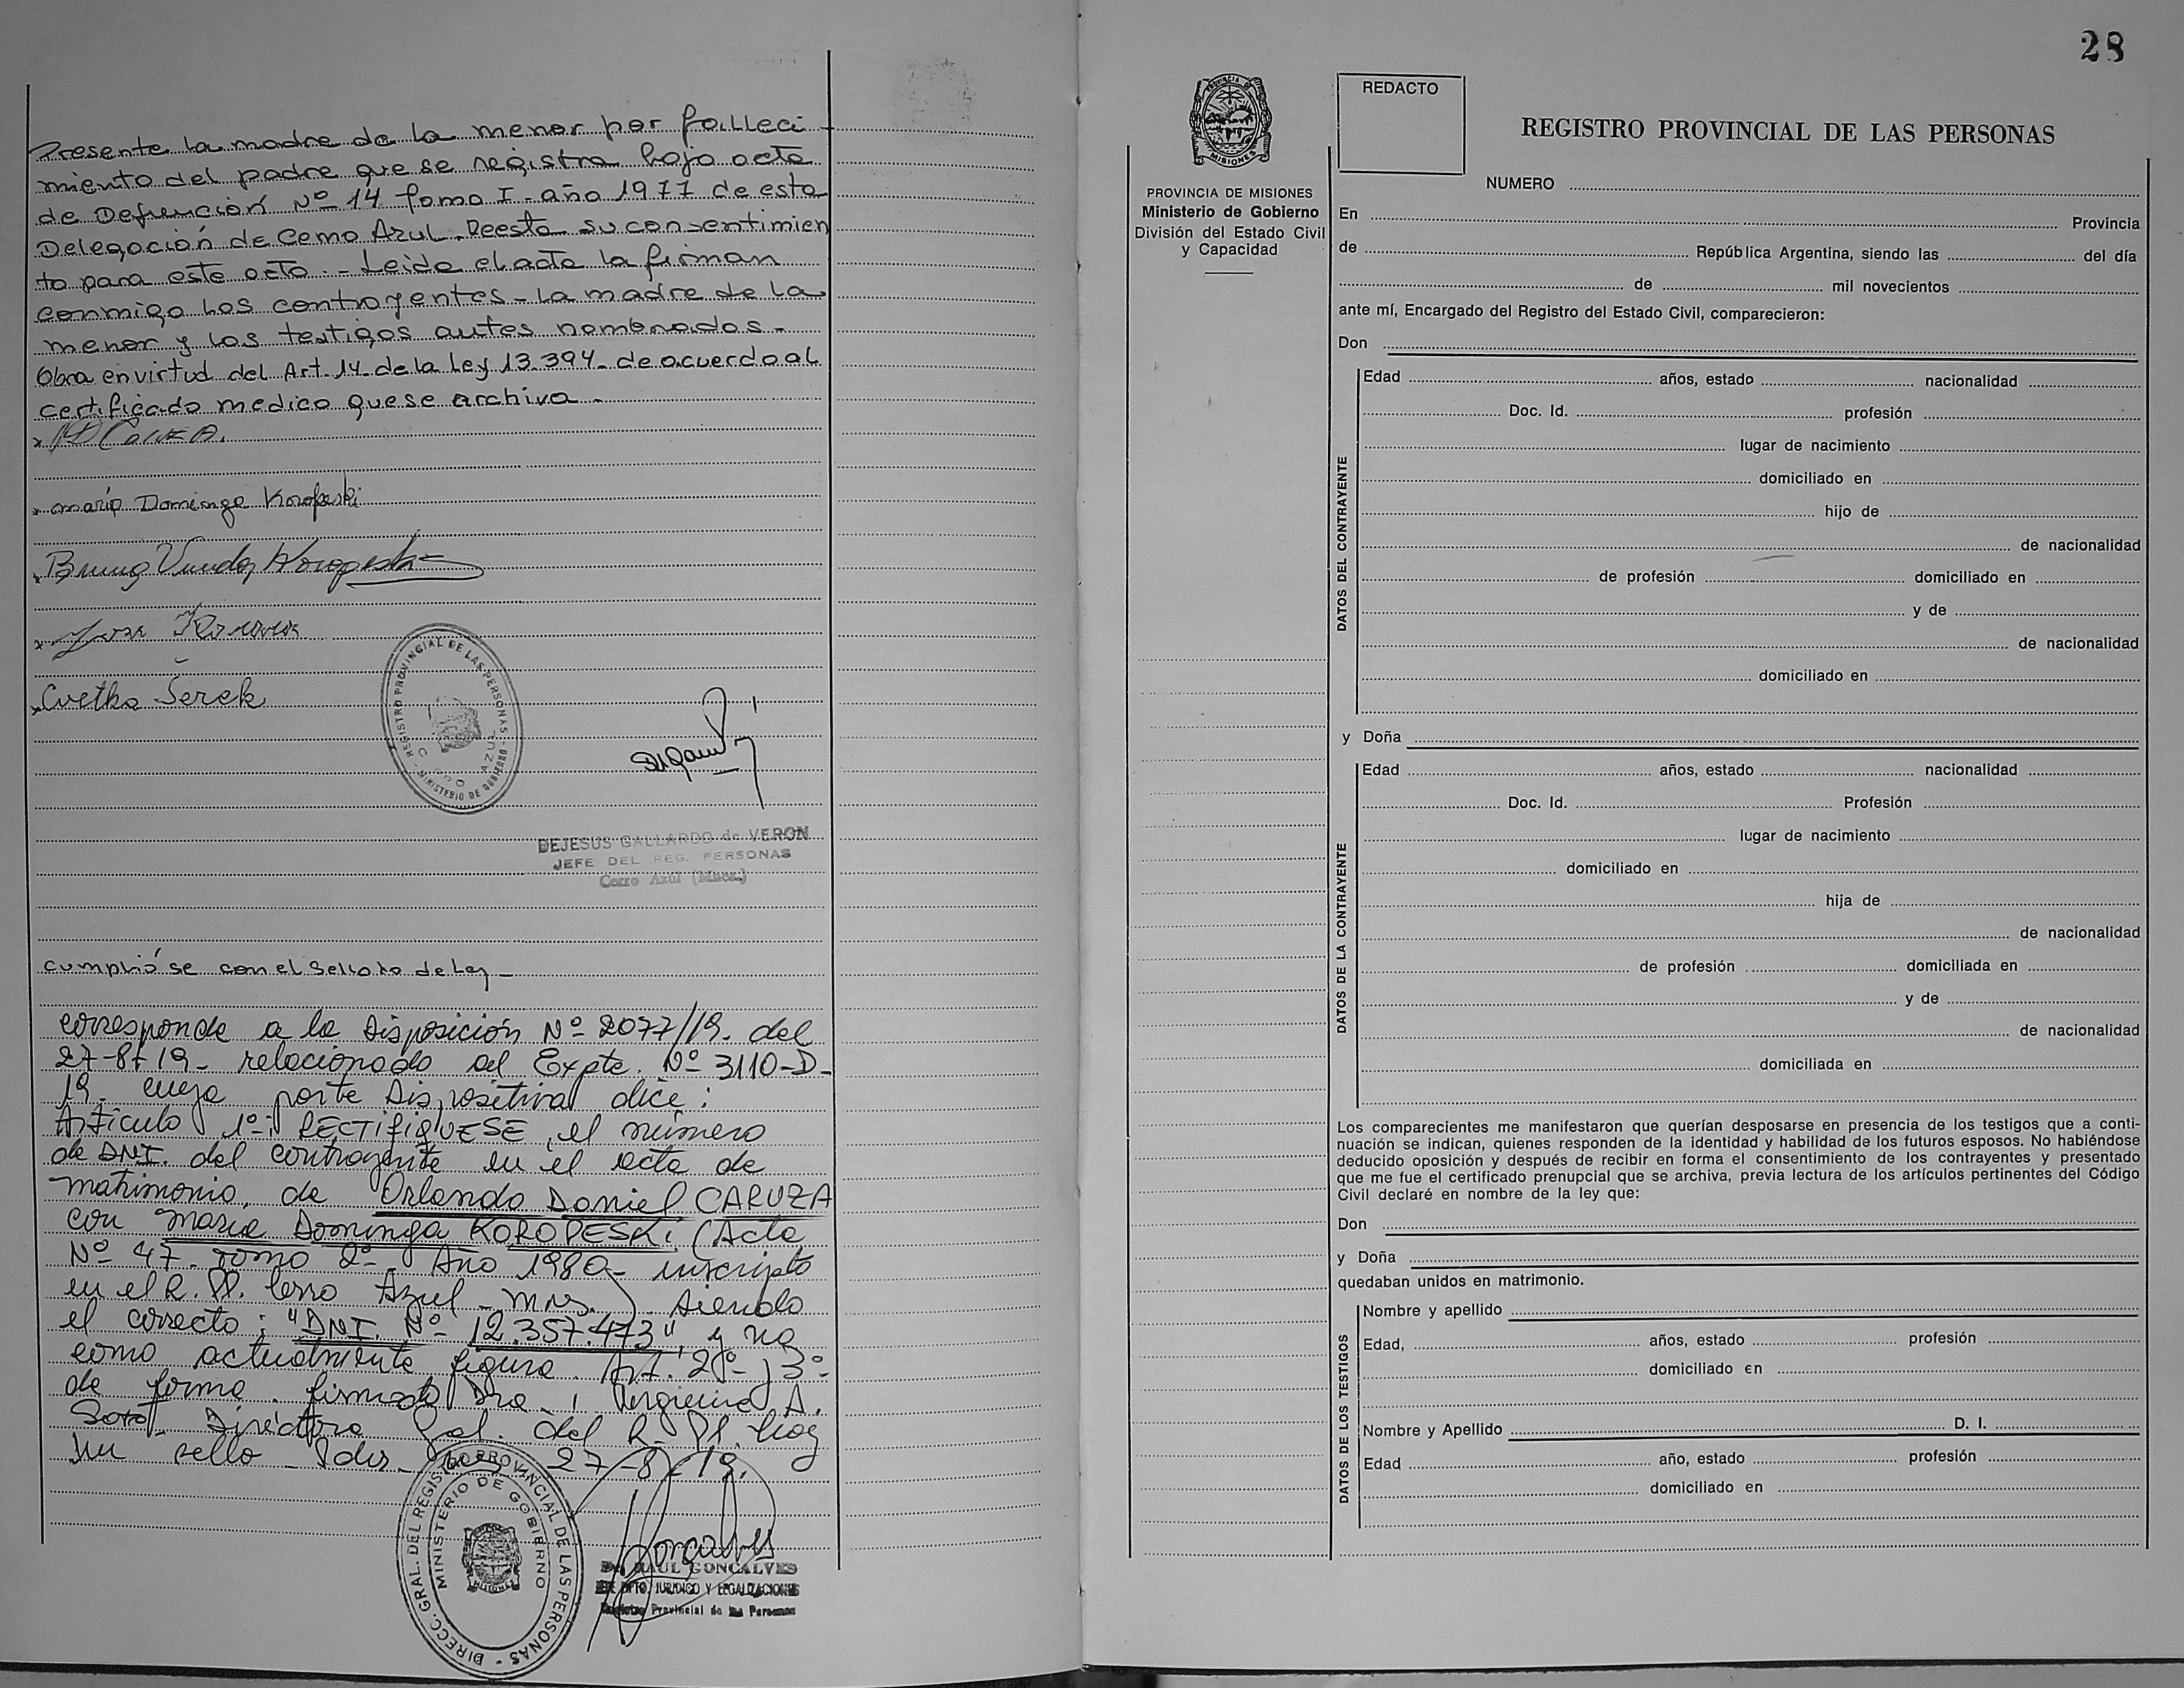 Presente la madre de la menor por falleci-
miento del padre que se registra bajo acta
de Defuncion Nº 14 Tomo I - año 1977 de esta
Delegación de Cerro Azul. Presta su consentimien
to para este acto. - Leida el acta la firman
conmigo los contrayentes - la madre de la
menor y los testigos antes nombrados -
Obra en virtud del Art. 14 de la Ley 13.394 - de acuerdo al
certificado medico que se archiva -
Maria Dominga Koropeski
Cvetka Serek
REGISTRO PROVINCIAL DE LAS PERSONAS - MINISTERIO DE GOBIERNO
DEJESUS GALLARDO de VERON
JEFE DEL REG. PERSONAS
Cerro Azul (Mnes.)
cumplió se con el Sellado de Ley -
corresponde a la Disposición Nº 2077/19. del
27-8-19 - relacionado al Expte. Nº 3110-D-
19. cuya parte Dispositiva dice:
Artículo 1º: RECTIFIQUESE, el número
de DNI. del contrayente en el acta de
matrimonio de Orlando Daniel CARUZA
con Maria Dominga KOROPESKi (Acta
Nº 47 - Tomo 2º - Año 1980 - inscripto
en el R. PP. Cerro Azul - Mnes.) siendo
el correcto: "DNI. Nº 12.357.473" y no
como actualmente figura. Art. 2º - y 3º
de forma. firmado Dra. A.
Soto Directora Gral. del R. PP. hay
un sello - Pdas - 27-8-19.
DIRECC. GRAL. DEL REGISTRO PROVINCIAL DE LAS PERSONAS -
MINISTERIO DE GOBIERNO
Dr. RAUL GONCALVES
JEFE DPTO. JURIDICO Y LEGALIZACIONES
Registro Provincial de las Personas
28
PROVINCIA DE
MISIONES
PROVINCIA DE MISIONES
Ministerio de Gobierno
División del Estado Civil
y Capacidad
REDACTO
REGISTRO PROVINCIAL DE LAS PERSONAS
NUMERO
En Provincia
de República Argentina, siendo las del día
de mil novecientos
ante mí, Encargado del Registro del Estado Civil, comparecieron:
Don
DATOS DEL CONTRAYENTE
Edad años, estado nacionalidad
Doc. Id. profesión
lugar de nacimiento
domiciliado en
hijo de
de nacionalidad
de profesión domiciliado en
y de
de nacionalidad
domiciliado en
y Doña
DATOS DE LA CONTRAYENTE
Edad años, estado nacionalidad
Doc. Id. Profesión
lugar de nacimiento
domiciliado en
hija de
de nacionalidad
de profesión domiciliada en
y de
de nacionalidad
domiciliada en
Los comparecientes me manifestaron que querían desposarse en presencia de los testigos que a conti-
nuación se indican, quienes responden de la identidad y habilidad de los futuros esposos. No habiéndose
deducido oposición y después de recibir en forma el consentimiento de los contrayentes y presentado
que me fue el certificado prenupcial que se archiva, previa lectura de los artículos pertinentes del Código
Civil declaré en nombre de la ley que:
Don
y Doña
quedaban unidos en matrimonio.
DATOS DE LOS TESTIGOS
Nombre y apellido
Edad, años, estado profesión
domiciliado en
Nombre y Apellido D. I.
Edad año, estado profesión
domiciliado en